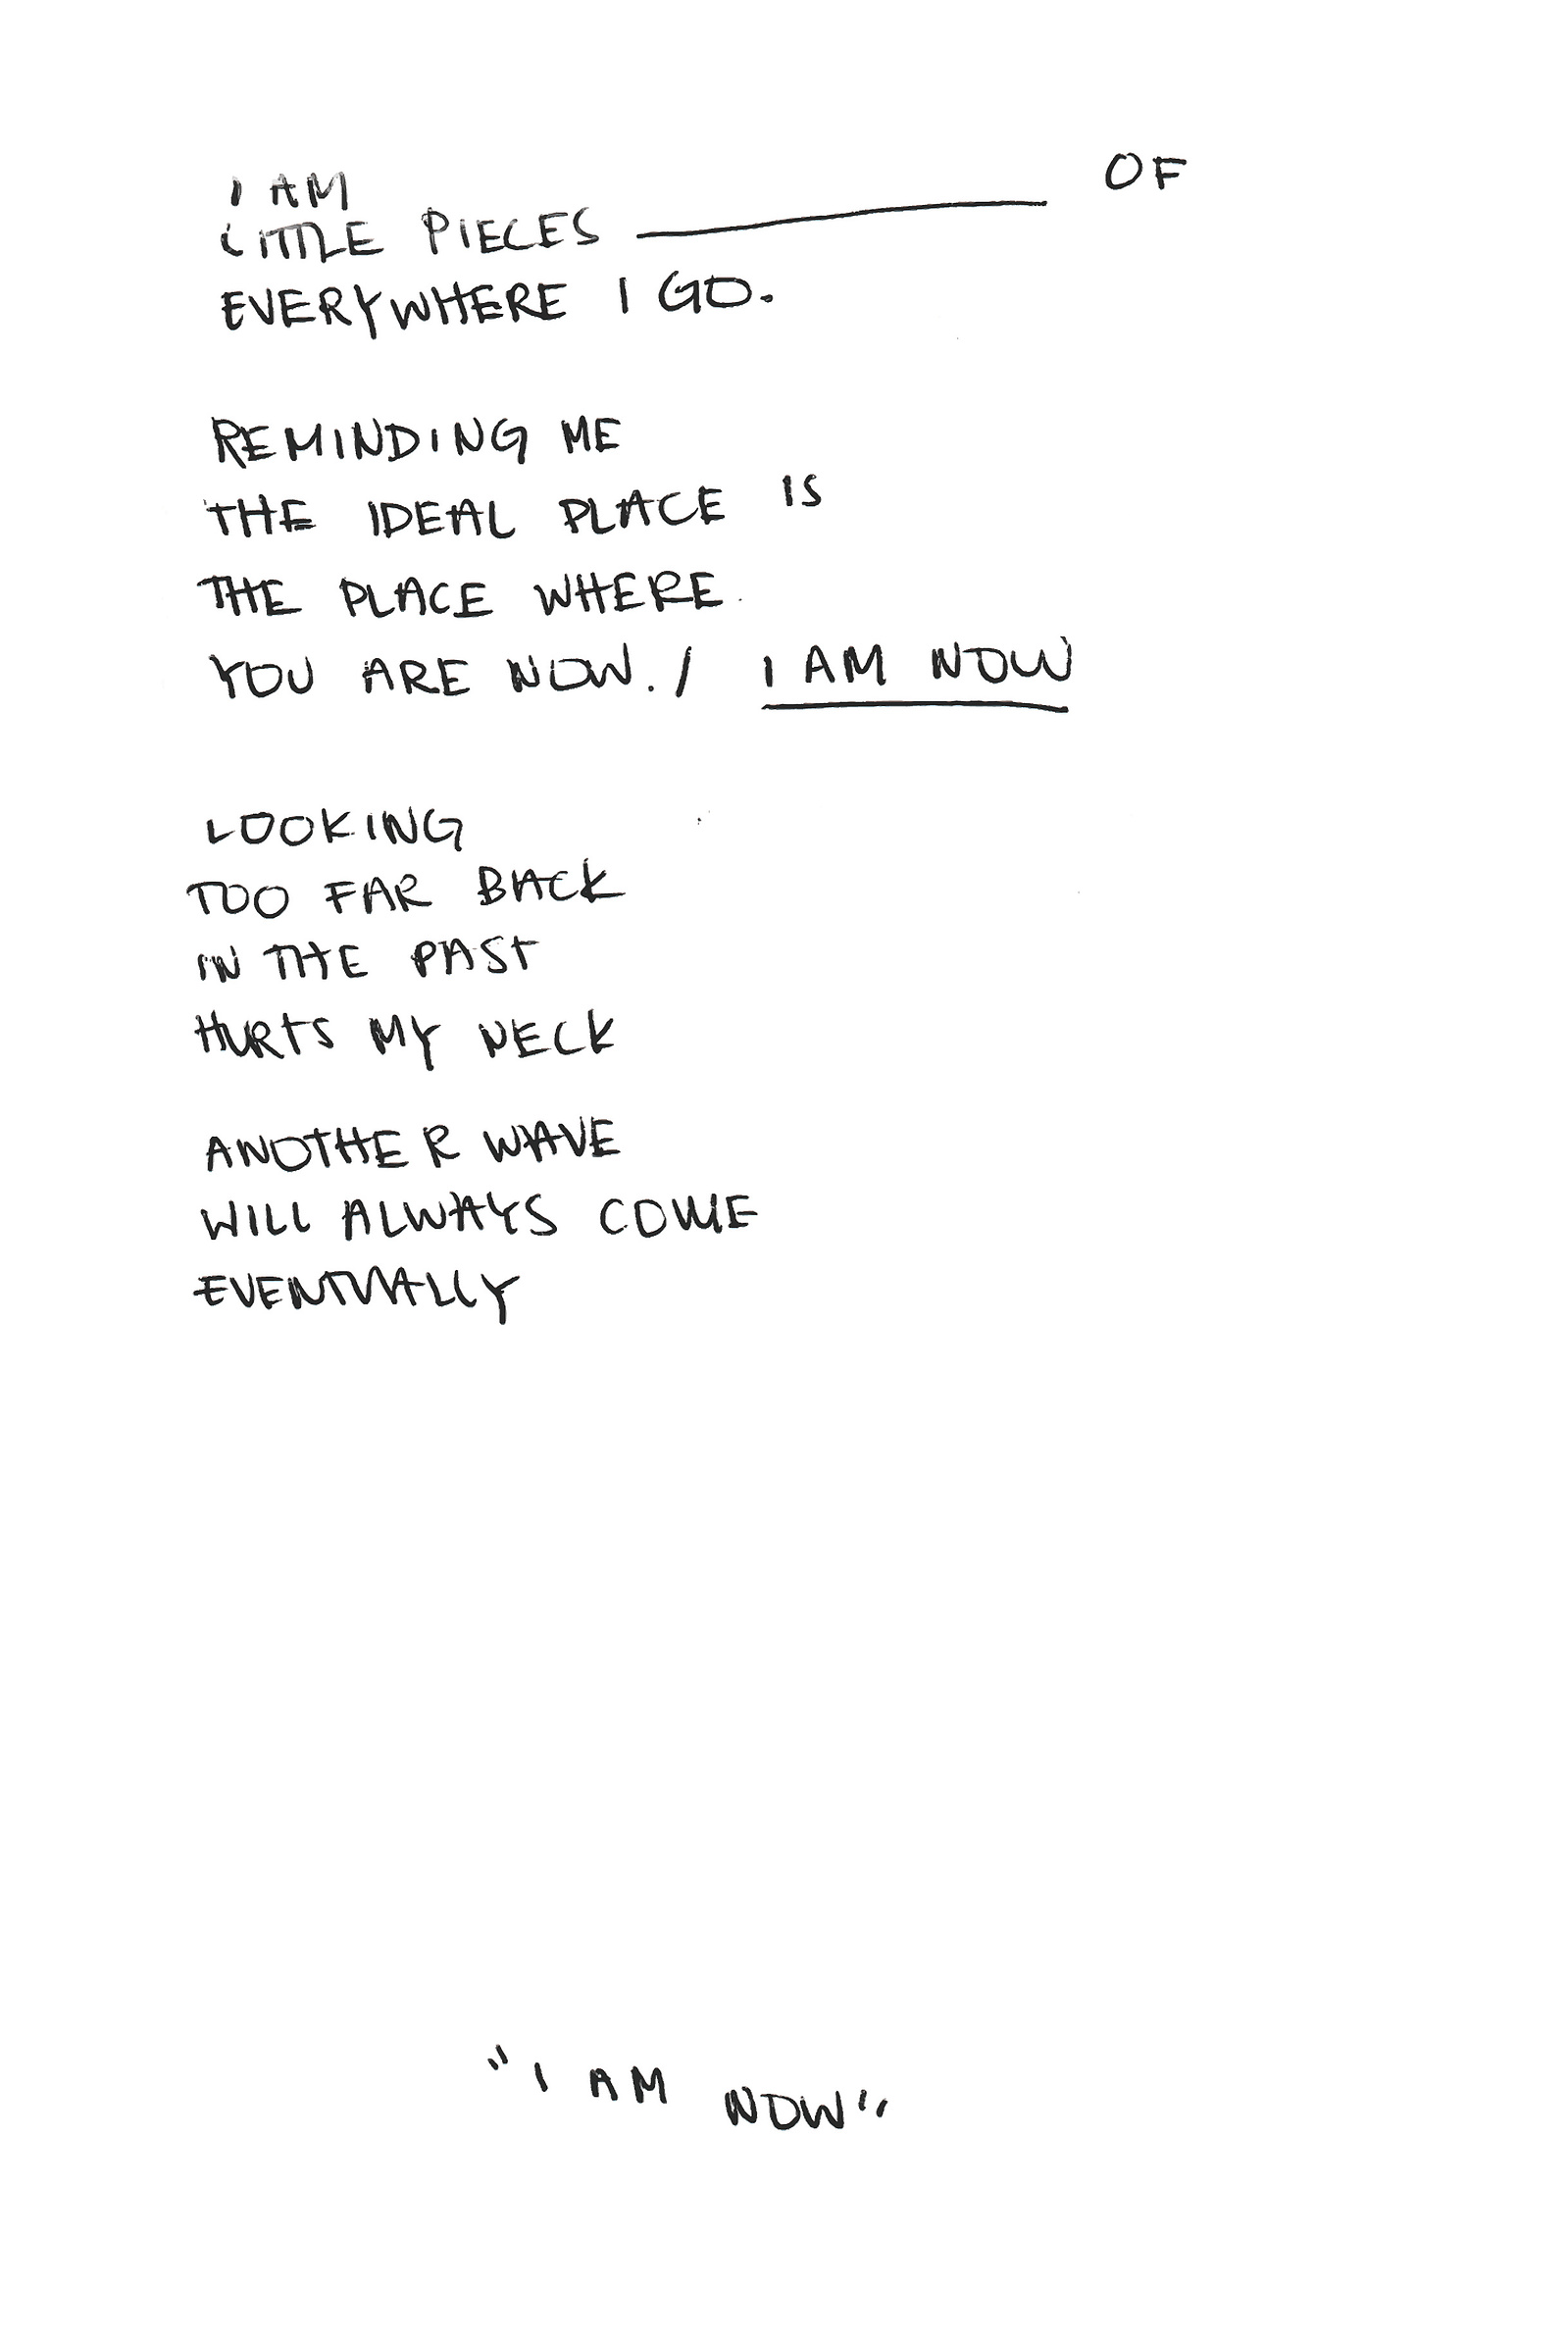 I AM
LITTLE PIECES ——— OF
EVERYWHERE I GO.
REMINDING ME
THE IDEAL PLACE IS
THE PLACE WHERE
YOU ARE NOW. / I AM NOW
LOOKING
TOO FAR BACK
IN THE PAST
HURTS MY NECK
ANOTHER WAVE
WILL ALWAYS COME
EVENTUALLY
"I AM NOW"